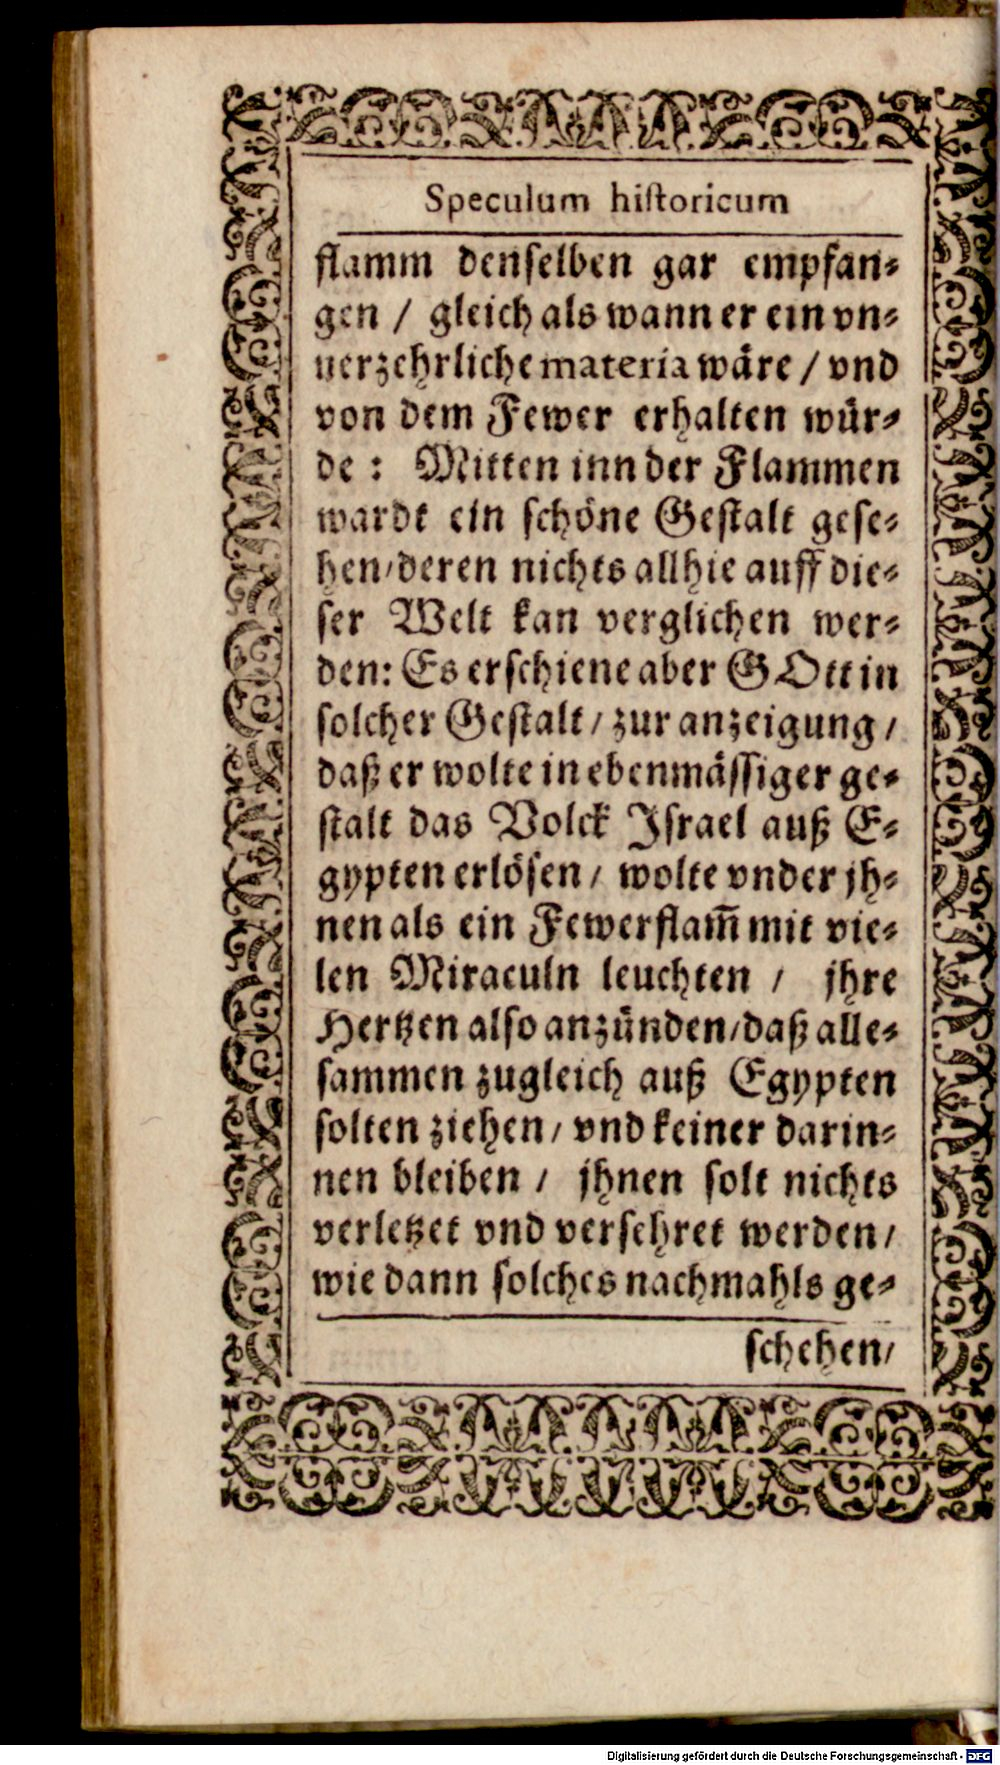 Speculum hiſtoricum
flamm denſelben gar empfan⸗
gen / gleich als wann er ein vn⸗
uerzehrliche materia wäre / vnd
von dem Fewer erhalten wür⸗
de : Mitten inn der Flammen
wardt ein ſchöne Geſtalt geſe⸗
hen/deren nichts allhie auff die⸗
ſer Welt kan verglichen wer⸗
den: Es erſchiene aber GOtt in
ſolcher Geſtalt / zur anzeigung /
daß er wolte in ebenmäſſiger ge⸗
ſtalt das Volck Jſrael auß E⸗
gypten erlöſen / wolte vnder jh⸗
nen als ein Fewerflam̄ mit vie⸗
len Miraculn leuchten / jhre
Hertzen alſo anzünden/daß alle⸗
ſammen zugleich auß Egypten
ſolten ziehen / vnd keiner darin⸗
nen bleiben / jhnen ſolt nichts
verletzet vnd verſehret werden /
wie dann ſolches nachmahls ge⸗
ſchehen/
Digitalisierung gefördert durch die Deutsche Forschungsgemeinschaft - DFG